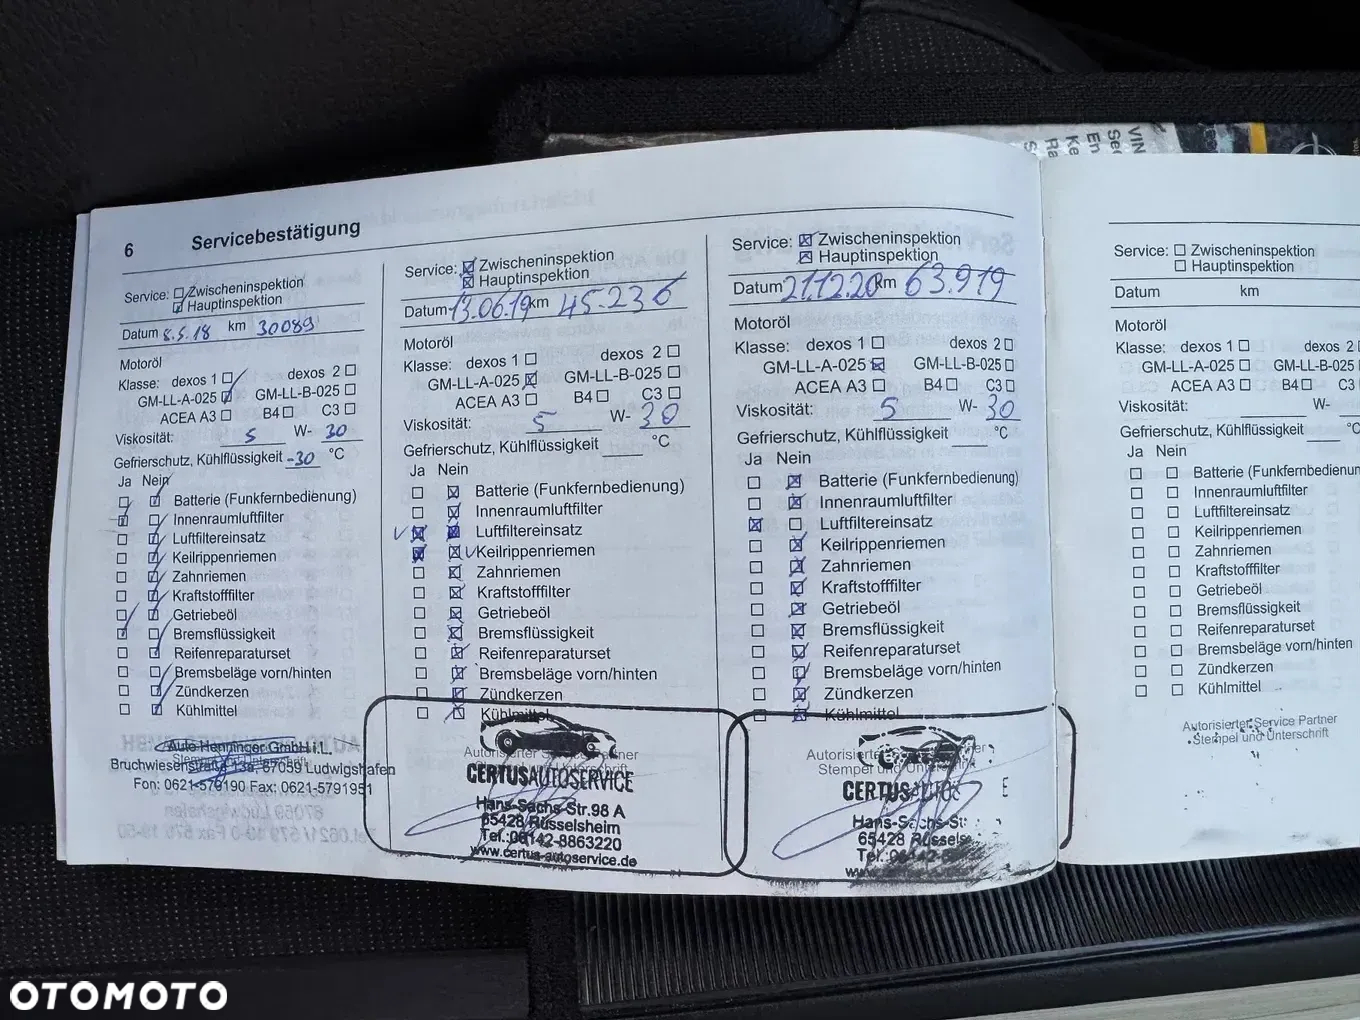 VIN
Se
En
Ke
Ra
6 Servicebestätigung
Service: Zwischeninspektion
Hauptinspektion
Datum 8.5.18 km 30089
Motoröl
Klasse: dexos 1 dexos 2
GM-LL-A-025 GM-LL-B-025
ACEA A3 B4 C3
Viskosität: 5 W- 30
Gefrierschutz, Kühlflüssigkeit -30 °C
Ja Nein
Batterie (Funkfernbedienung)
Innenraumluftfilter
Luftfiltereinsatz
Keilrippenriemen
Zahnriemen
Kraftstofffilter
Getriebeöl
Bremsflüssigkeit
Reifenreparaturset
Bremsbeläge vorn/hinten
Zündkerzen
Kühlmittel
Auto Henninger GmbH i.L.
Stempel und Unterschrift
Bruchwiesenstraße 138, 67059 Ludwigshafen
Fon: 0621-579190 Fax: 0621-5791951
Service: Zwischeninspektion
Hauptinspektion
Datum 13.06.19 km 45.236
Motoröl
Klasse: dexos 1 dexos 2
GM-LL-A-025 GM-LL-B-025
ACEA A3 B4 C3
Viskosität: 5 W- 30
Gefrierschutz, Kühlflüssigkeit °C
Ja Nein
Batterie (Funkfernbedienung)
Innenraumluftfilter
Luftfiltereinsatz
Keilrippenriemen
Zahnriemen
Kraftstofffilter
Getriebeöl
Bremsflüssigkeit
Reifenreparaturset
Bremsbeläge vorn/hinten
Zündkerzen
Kühlmittel
Autorisierter Service Partner
CERTUS AUTOSERVICE
Hans-Sachs-Str.98 A
65428 Rüsselsheim
Tel.:06142-8863220
www.certus-autoservice.de
Service: Zwischeninspektion
Hauptinspektion
Datum 21.12.20 km 63.919
Motoröl
Klasse: dexos 1 dexos 2
GM-LL-A-025 GM-LL-B-025
ACEA A3 B4 C3
Viskosität: 5 W- 30
Gefrierschutz, Kühlflüssigkeit °C
Ja Nein
Batterie (Funkfernbedienung)
Innenraumluftfilter
Luftfiltereinsatz
Keilrippenriemen
Zahnriemen
Kraftstofffilter
Getriebeöl
Bremsflüssigkeit
Reifenreparaturset
Bremsbeläge vorn/hinten
Zündkerzen
Kühlmittel
Autorisierter
Stempel und Unterschrift
CERTUS
Hans-Sachs-St
65428 Rüssels
Tel.:06142-8
www
Service: Zwischeninspektion
Hauptinspektion
Datum km
Motoröl
Klasse: dexos 1 dexos 2
GM-LL-A-025 GM-LL-B-025
ACEA A3 B4 C3
Viskosität: W-
Gefrierschutz, Kühlflüssigkeit °C
Ja Nein
Batterie (Funkfernbedienun
Innenraumluftfilter
Luftfiltereinsatz
Keilrippenriemen
Zahnriemen
Kraftstofffilter
Getriebeöl
Bremsflüssigkeit
Reifenreparaturset
Bremsbeläge vorn/hinten
Zündkerzen
Kühlmittel
Autorisierter Service Partner
Stempel und Unterschrift
OTOMOTO